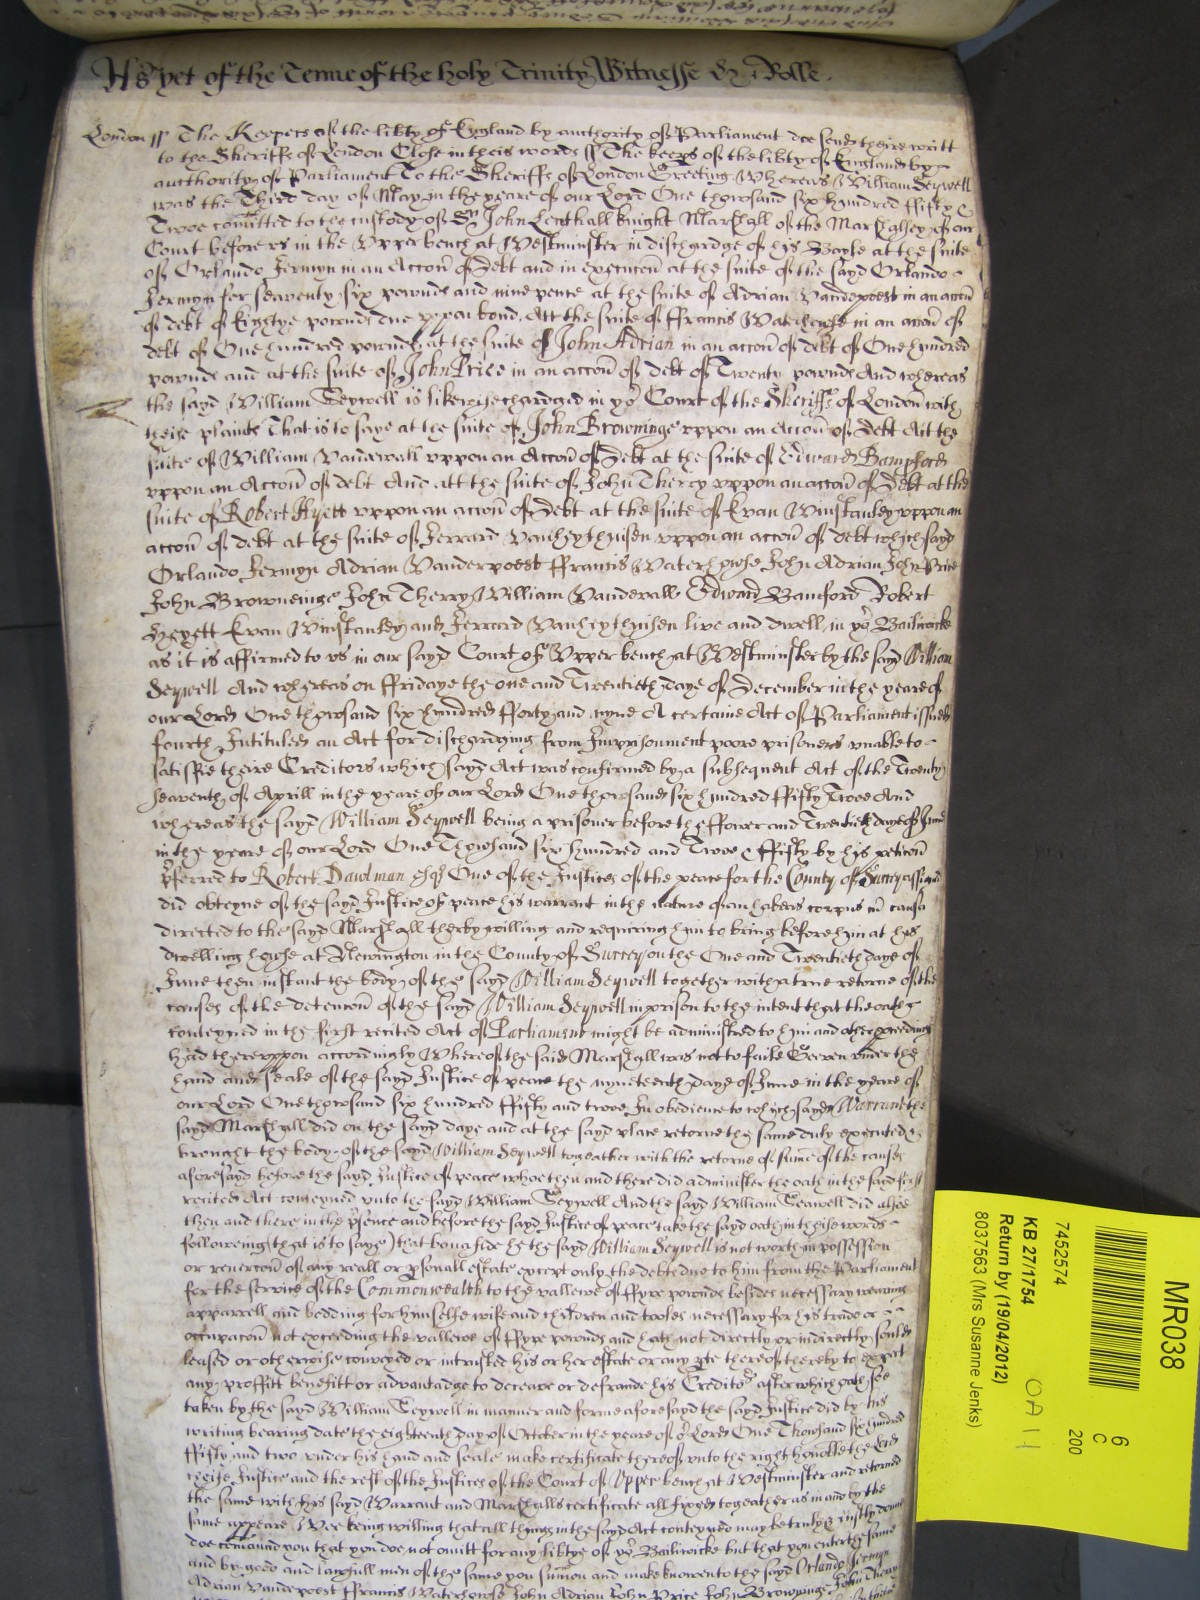 As yet of the Terme of the holy Trinity Witnesse H Rolle.
London ss The Keepers of the libty of England by authority of Parliament doe send theire writt
to the Sheriffs of London Close in theis words ss The keeps of the libty of England by
authority of Parliament To the Sheriffs of London Greeting Whereas William Seywell
was the Third day of May in the yeare of our Lord One thowsand six hundred ffifty &
Twoe comitted to the custody of Sr John Lenthall knight Marshall of the Marshalsey of our
Court before us in the Upper bench at Westminster in dischardge of his Bayle at the suite
of Orlando Jermyn in an Accon of Debt and in execucon at the suite of the sayd Orlando
Jermyn for seaventy six pownds and nine pence at the suite of Adrian Vanderpoest in an accon
of debt of Eightye pownds due uppon bond. Att the suite of ffrancis Waterhowse in an accon of
debt of One hundred pownds at the suite of John Adrian in an accon of debt of One hundred
pownds and at the suite of John Price in an accon of debt of Twenty pownds And whereas
the sayd William Seywell is likewise chardged in yor Court of the Sheriffs of London with
theise plaints That is to saye at the suite of John Browninge uppon an Accon of Debt Att the
suite of William Vandewall uppon an Accon of Debt at the suite of Edward Bampford
uppon an Accon of debt And att the suite of John Therry uppon an accon of Debt at the
suite of Robert Hyett uppon an accon of Debt at the suite of Evan Winstanley uppon an
accon of debt at the suite of Jerrard Vanheythuisen uppon an accon of debt which sayd
Orlando Jermyn Adrian Vanderpoest ffrancis Waterhowse John Adrian John Price
John Browneinge John Therry William Vandewall Edward Bamford Robert
Heyett Evan Winstanley and Jerrard Vanheythuisen live and dwell in yor Bailiwicke
as it is affirmed to us in our sayd Court of Upper bench at Westminster by the sayd William
Seywell And whereas on ffridaye the one and Twentieth daye of December in the yeare of
our Lord One thowsand six hundred fforty and nyne A certaine Act of Parliament issued
fourth Intituled an Act for dischardging from Imprisonment poore prisoners unable to
satisfie theire Creditors which sayd Act was confirmed by a subsequent Act of the Twenty
seaventh of Aprill in the yeare of our Lord One thowsand six hundred ffifty Twoe And
whereas the sayd William Seywell being a prisoner before the ffower and Twentieth daye of June
in the yeare of our Lord One Thowsand six hundred and Twoe & ffifty by his peticon
pferred to Robert Dawlman esqr One of the Justices of the peace for the County of Surrey assigned
did obteyne of the sayd Justice of peace his warrant in the nature of an habeas corpus cu causa
directed to the sayd Marshall therby willing and requiring him to bring before him at his
dwelling howse at Newington in the County of Surrey on the One and Twentieth daye of
June then instant the body of the sayd William Seywell together with a true retorne of the
causes of the detencon of the sayd William Seywell in prison to the intent that the oath
conteyned in the first recited Act of Parliament might be administred to him and other pceedings
had thereuppon accordingly Whereof the said Marshall was not to faile Geeven under the
hand and seale of the sayd Justice of peace the nyneteenth daye of June in the yeare of
our Lord One thowsand six hundred ffifty and twoe In obedience to which sayd Warrant the
sayd Marshall did on the sayd daye and at the sayd place retorne the same duly executed &
brought the body of the sayd William Seywell togeather with the retorne of sume of the causes
aforesayd before the sayd Justice of peace whoe then and there did administer the oath in the sayd first
recited Act conteyned unto the sayd William Seywell And the sayd William Seawell did alsoe
then and there in the psence and before the sayd Justice of peace take the sayd oath in theise words
followeing (that is to saye) that bona fide he the sayd William Seywell is not worth in possession
or revercon of any reall or psonall estate except only the debt due to him from the Parliament
for the service of the Commonwealth to the vallewe of ffyve pownds besides necessary wearing
apparrell and bedding for himselfe wife and children and tooles necessary for his trade or
occupacon not exceeding the vallewe of ffyve pownds and hath not directly or indirectly sould
leased or otherwise conveyed or intrusted his or her estate or any pte thereof thereby to expect
any proffitt benefitt or advantadge to deceave or defraude his Creditors after which oath soe
taken by the sayd William Seywell in manner and forme aforesayd the sayd Justice did by his
writing bearing date the eighteenth day of October in the yeare of or Lord One Thowsand six hundred
ffifty and two under his hand and seale make certificate thereof unto the right honoble the Lord
cheife Justice and the rest of the Justices of the Court of Upper bench at Westminster and retorned
the same with his sayd Warrant and Marshalls certificate all fixed togeather as in and by the
same appeare Wee being willing that all things in the sayd Act conteyned may be truly & justly donne
doe comaund you that you doe not omitt for any libtye of yor Bailiwicke but that you enter the same
and by good and lawfull men of the same you sumon and make knowen to the sayd Orlando Jermyn
Adrian Vanderpoest ffrancis Waterhowse John Adrian John Price John Browninge John Therry
MR038
6
C
200
7452574
KB 27/1754
OA 11
Return by (19/04/2012)
8037563 (Mrs Susanne Jenks)